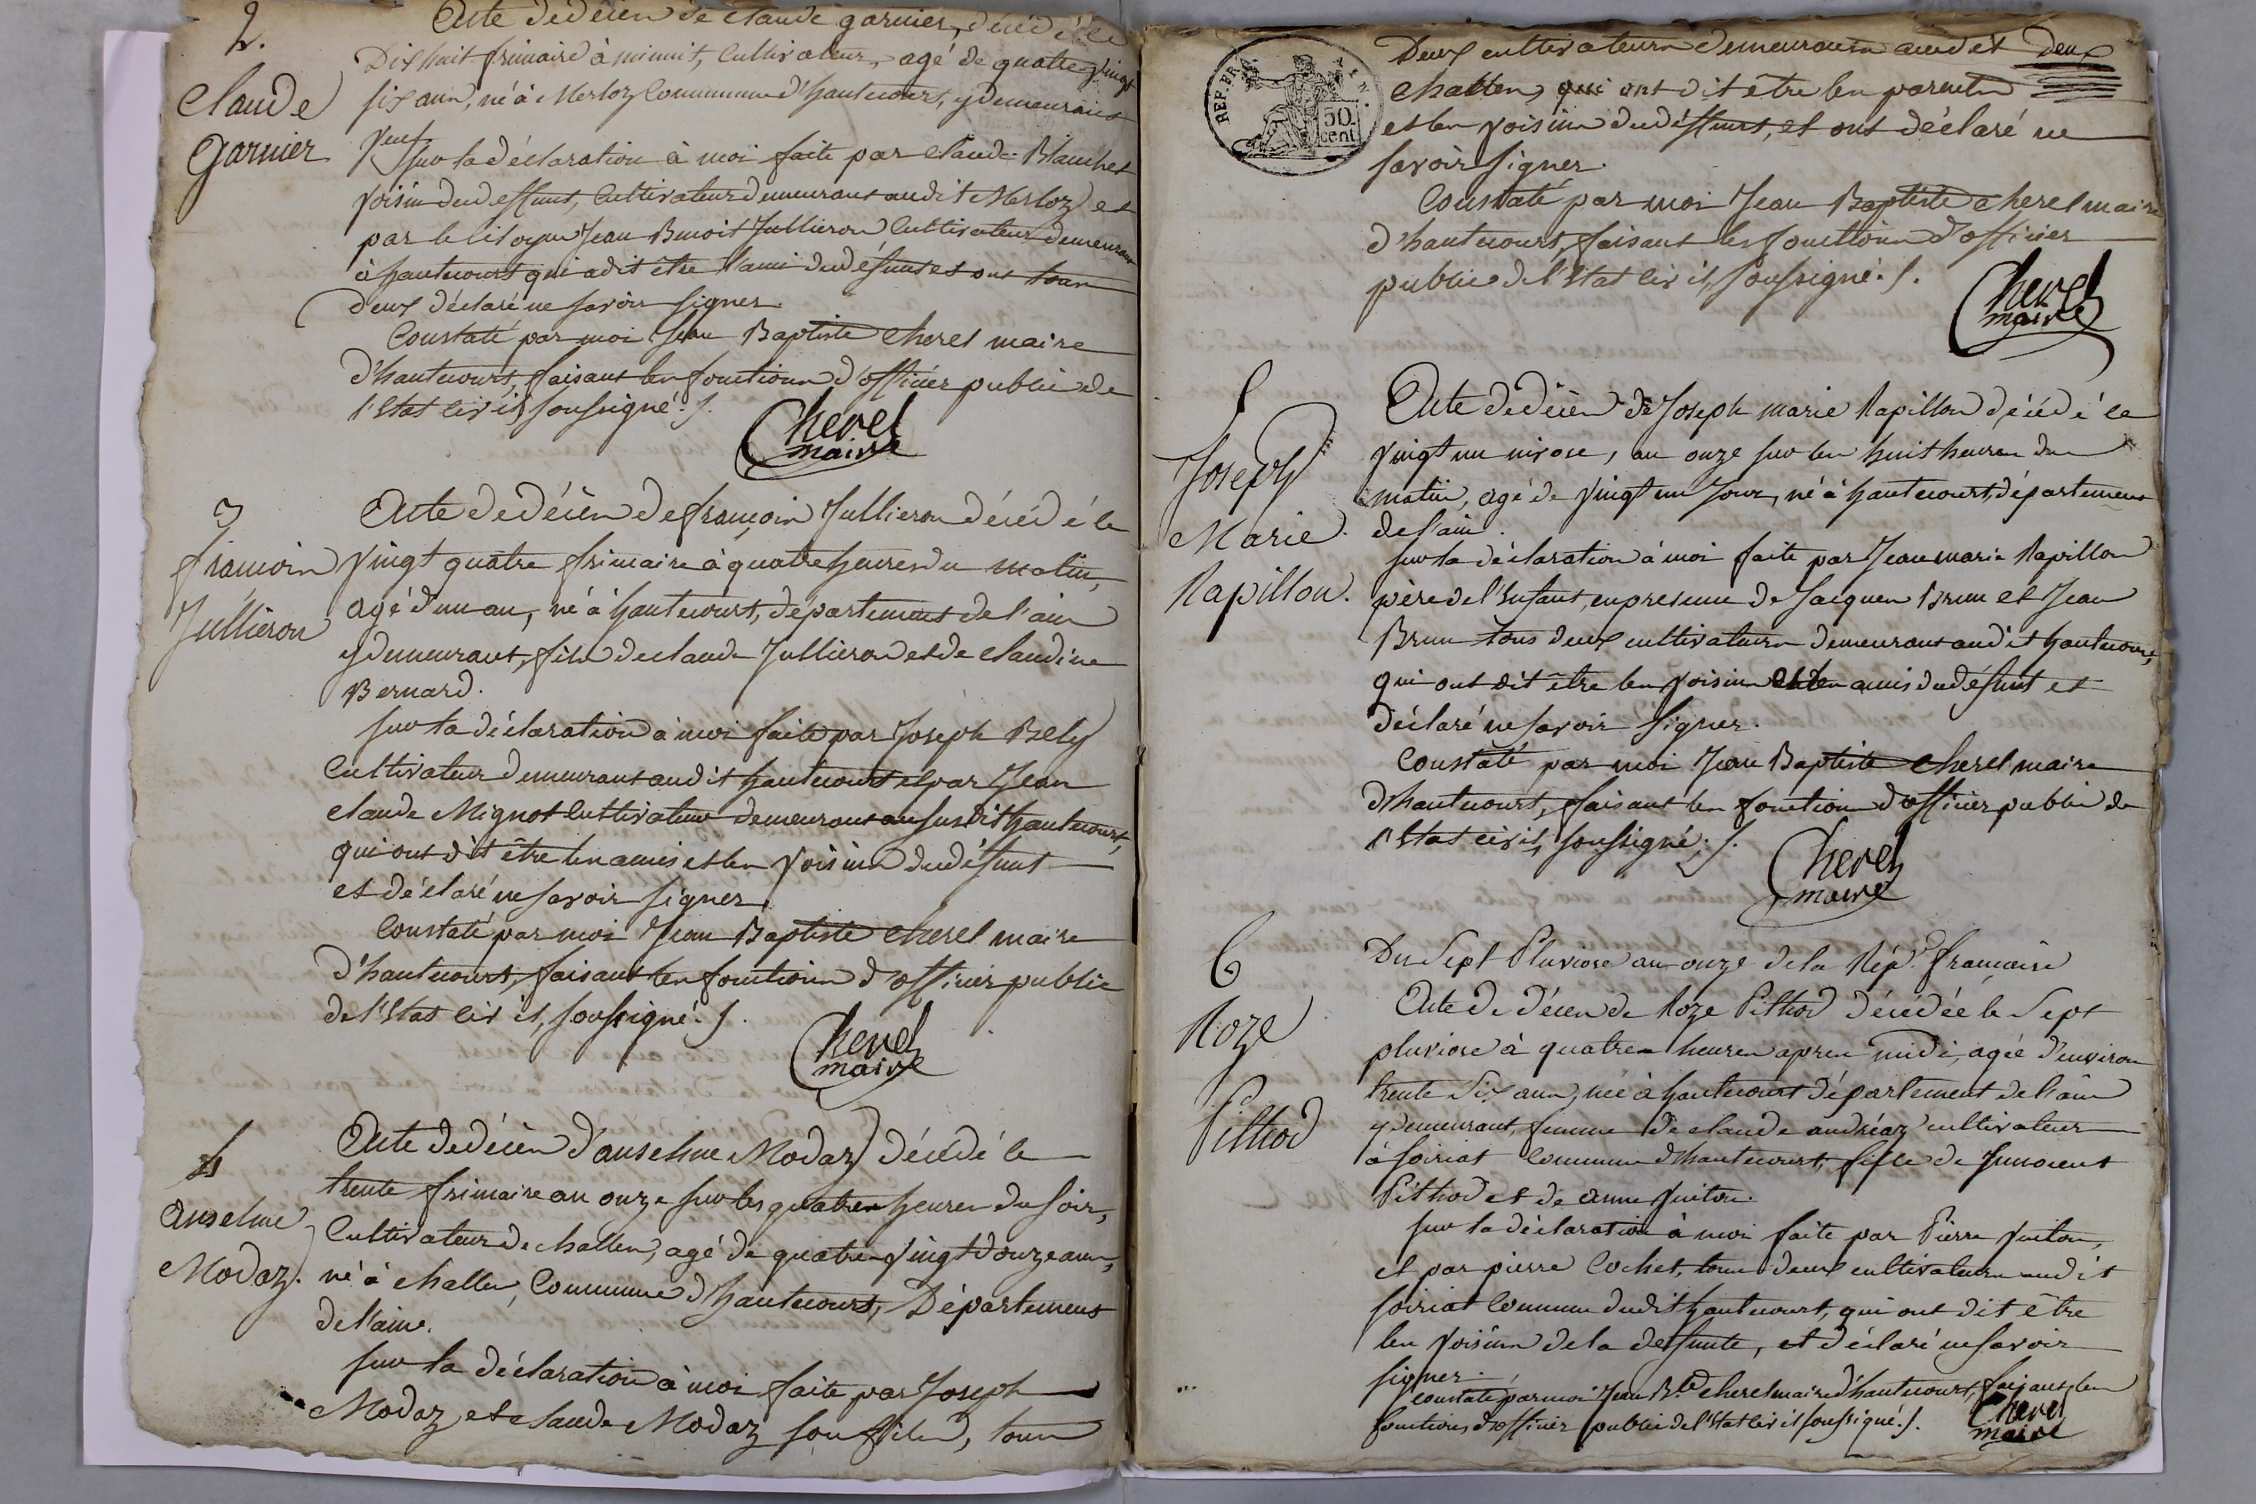 2.
Claude
Garnier
Acte de décès de Claude garnier, décédé le
Dix huit frimaire à minuit, Cultivateur, agé de quatre vingt
six ans, né à Merloz Commune d'hautecourt, y demeurant
veuf
sur la déclaration à moi faite par Claude Blanchet
voisin du deffunt, Cultivateur demeurant audit Merloz et
par le citoyen Jean Benoit Jullieron Cultivateur demeurant
à hautecourt qui a dit être l'ami du défunt et ont tous
deux déclaré ne savoir signer.
Constaté par moi Jean Baptiste Cherel maire
d'hautecourt, faisant les fonctions d'officier public de
l'Etat civil soussigné. /.
Cherel
maire
3
françois
Jullieron
Acte de décès de françois Jullieron décédé le
vingt quatre frimaire à quatre heures du matin,
agé d'un an, né à hautecourt, département de l'ain
y demeurant, fils de claude Jullieron et de claudine
Bernard.
sur la déclaration à moi faite par Joseph Bely
Cultivateur demeurant audit hautecourt et par Jean
claude Mignot Cultivateur demeurant au susdit hautecourt,
qui ont dit être les amis et les voisins du défunt
et déclaré ne savoir signer.
Constaté par moi Jean Baptiste Cherel maire
d'hautecourt, faisant les fonctions d'officier public
de l'Etat civil, soussigné. /.
Cherel
maire
4
anselme
Modaz.
Acte de décès d'anselme Modaz décédé le
trente frimaire an onze sur les quatre heures du soir,
Cultivateur de challes, agé de quatre vingt douze ans,
né à challes, Commune d'hautecourt, Département
de l'ain.
sur la déclaration à moi faite par Joseph
Modaz et claude Modaz son fils, tous
REP. FRA.
50
cent
Deux cultivateurs demeurans audit deux
challes, qui ont dit être les parents
et les voisins du deffunt, et ont déclaré ne
savoir signer.
Constaté par moi Jean Baptiste Cherel maire
d'hautecourt, faisant les fonctions d'officier
public de l'Etat civil, soussigné. /.
Cherel
maire
5
Joseph
Marie
Rapillon.
Acte de décès de Joseph marie Rapillon décédé le
vingt un nivose, an onze sur les huit heures du
matin, agé de vingt un jour, né à hautecourt, département
de l'ain.
sur la déclaration à moi faite par Jean marie Rapillon
père de l'enfant, en presence de Jacques Brun et Jean
Brun tous deux cultivateurs demeurant audit hautecourt,
qui ont dit être les voisins et les amis du défunt et
déclaré ne savoir signer.
Constaté par moi Jean Baptiste Cherel maire
d'hautecourt, faisant les fonctions d'officier public de
l'Etat civil, soussigné. /.
Cherel
maire
6
Roze
Pithod
Du Sept Pluviose an onze de la Rép. française
Acte de décès de Roze Pithod décédée le Sept
pluviose à quatre heures apres midi, agée d'environ
trente six ans, née à hautecourt département de l'ain
y demeurant, femme de claude andréaz cultivateur
à soiriat commune d'hautecourt, fille de Innocent
Pithod et de anne vuiton.
sur la déclaration à moi faite par Pierre vuiton,
et par pierre Cochet, tous deux cultivateurs audit
soiriat commune dudit hautecourt, qui ont dit être
les voisins de la deffunte, et déclaré ne savoir
signer.
constaté par moi Jean Bte Cherel maire d'hautecourt, faisant les
fonctions d'officier public de l'Etat civil soussigné. /.
Cherel
maire